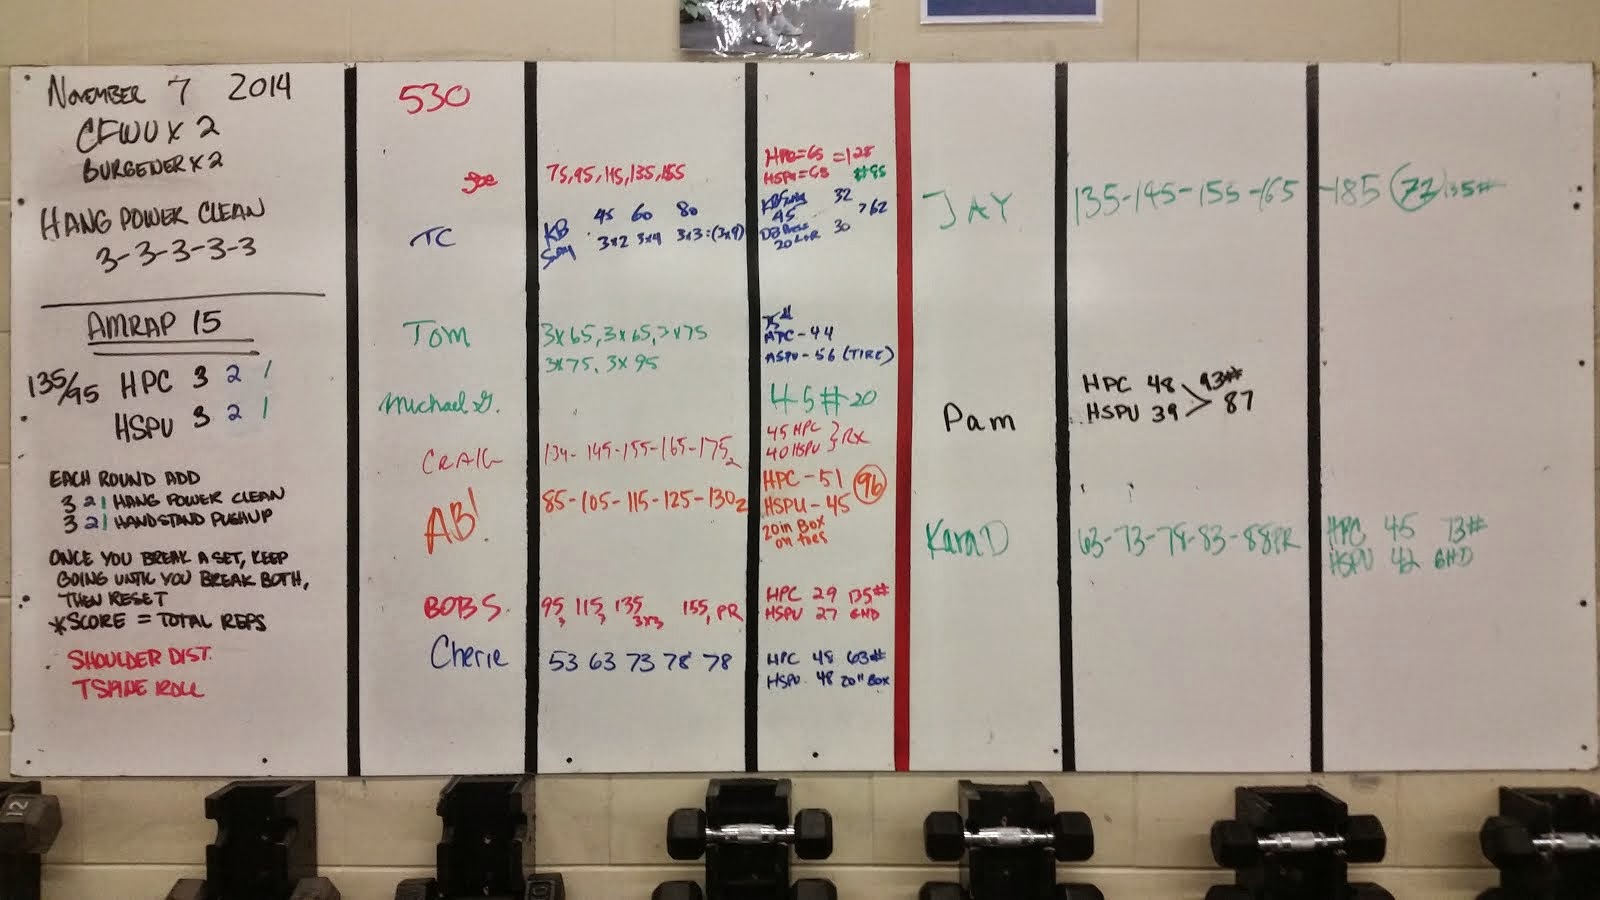 NOVEMBER 7 2014
CFWU X 2
BURGENER X 2
HANG POWER CLEAN
3-3-3-3-3
AMRAP 15
135/95 HPC 3 2 1
HSPU 3 2 1
EACH ROUND ADD
3 2 1 HANG POWER CLEAN
3 2 1 HANDSTAND PUSHUP
ONCE YOU BREAK A SET, KEEP
GOING UNTIL YOU BREAK BOTH,
THEN RESET
*SCORE = TOTAL REPS
SHOULDER DIST.
TSPINE ROLL
530
Joe 75, 95, 115, 135, 155
HPC=65 =128
HSPU=63 #95
TC
KB 45 60 80
3x2 3x4 3x3
45
32
>62
20 30
Tom 3x65, 3x65, 3x75
3x75, 3x95
HPC-44
HSPU-56 (TIRE)
Michael G. 45# 20
CRAIG 134-145-155-165-175 2
45 HPC
40 HSPU } RX
AB! 85-105-115-125-130 2
HPC-51 96
HSPU-45
20in Box
on toes
BOB S. 95 3 115 3 135 3x3 155, PR
HPC 29 135#
HSPU 27 GHD
Cherie 53 63 73 78 78
HPC 48 63#
HSPU 48 20" BOX
JAY 135-145-155-165-185 73 135#
Pam
HPC 48 93#
HSPU 39 > 87
Kara D 63-73-78-83-88 PR
HPC 45 73#
HSPU 42 GHD
12